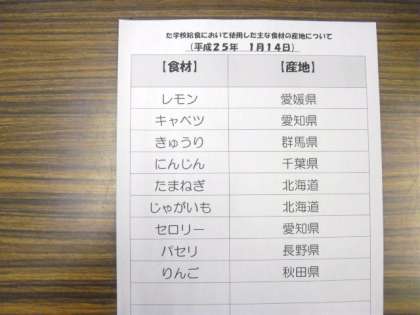 た学校給食において使用した主な食材の産地について
(平成25年 1月14日)
【食材】 【産地】
レモン 愛媛県
キャベツ 愛知県
きゅうり 群馬県
にんじん 千葉県
たまねぎ 北海道
じゃがいも 北海道
セロリー 愛知県
パセリ 長野県
りんご 秋田県